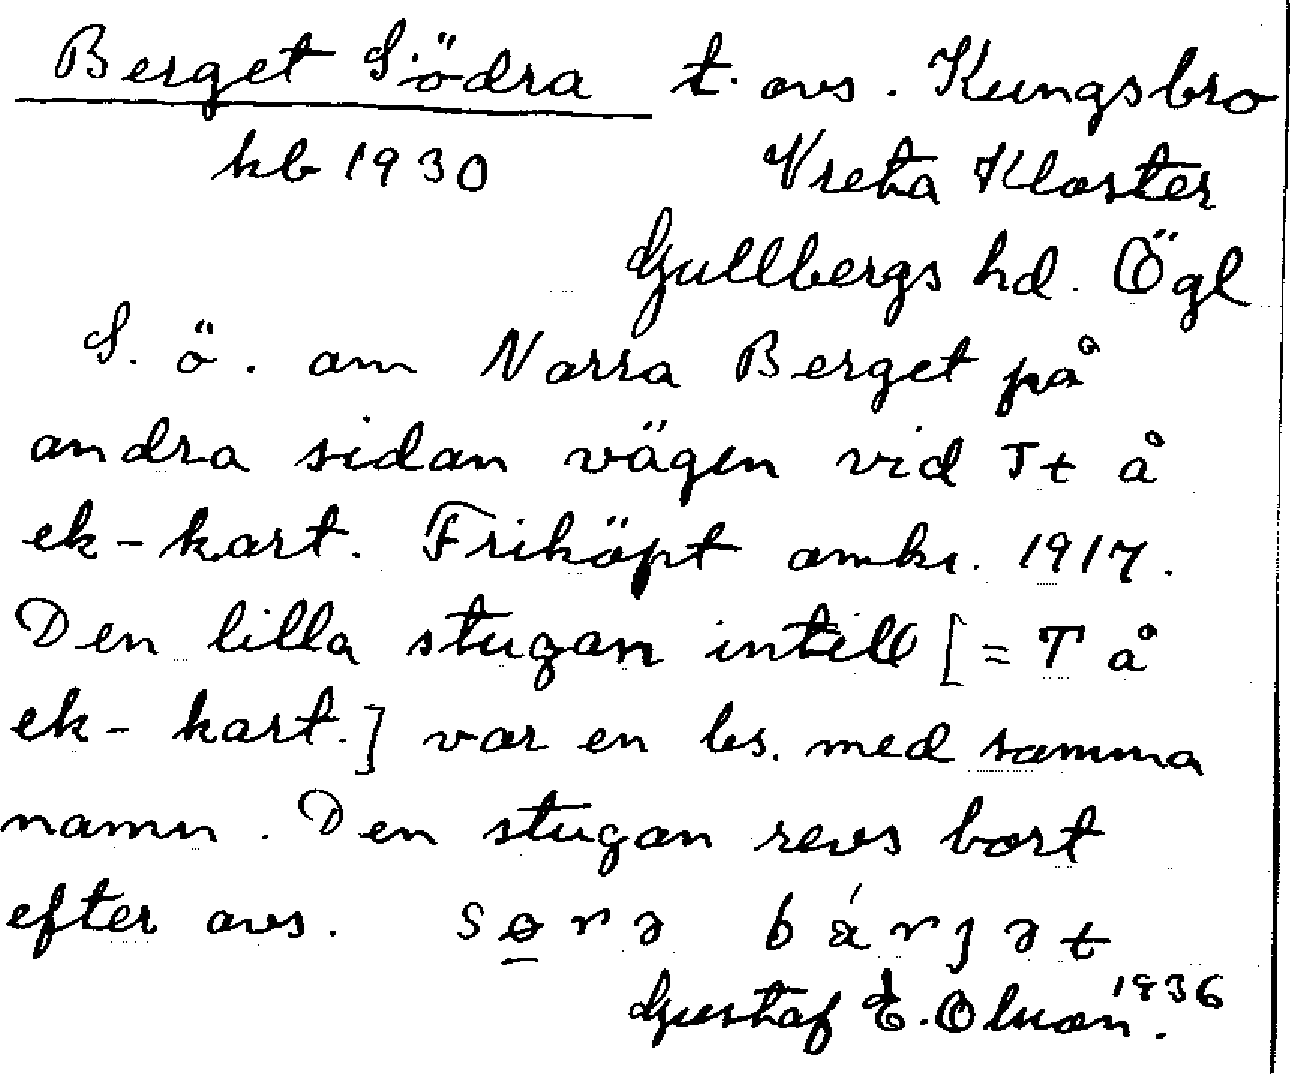 Berget Södra t. avs. Kungsbro
kb 1930 Vreta Kloster
Gullbergs hd. Ögl
S. ö. om Norra Berget på
andra sidan vägen vid Tt å
ek-kart. Friköpt omkr. 1917.
Den lilla stugan intill [= T å
ek-kart.] var en bs. med samma
namn. Den stugan revs bort
efter avs. sø̱rə bárjət
Gustaf E. Olson 1936.